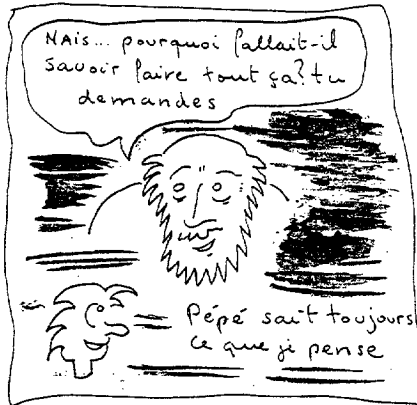 MAIS... pourquoi fallait-il
savoir faire tout ça? tu
demandes
Pépé sait toujours
ce que je pense